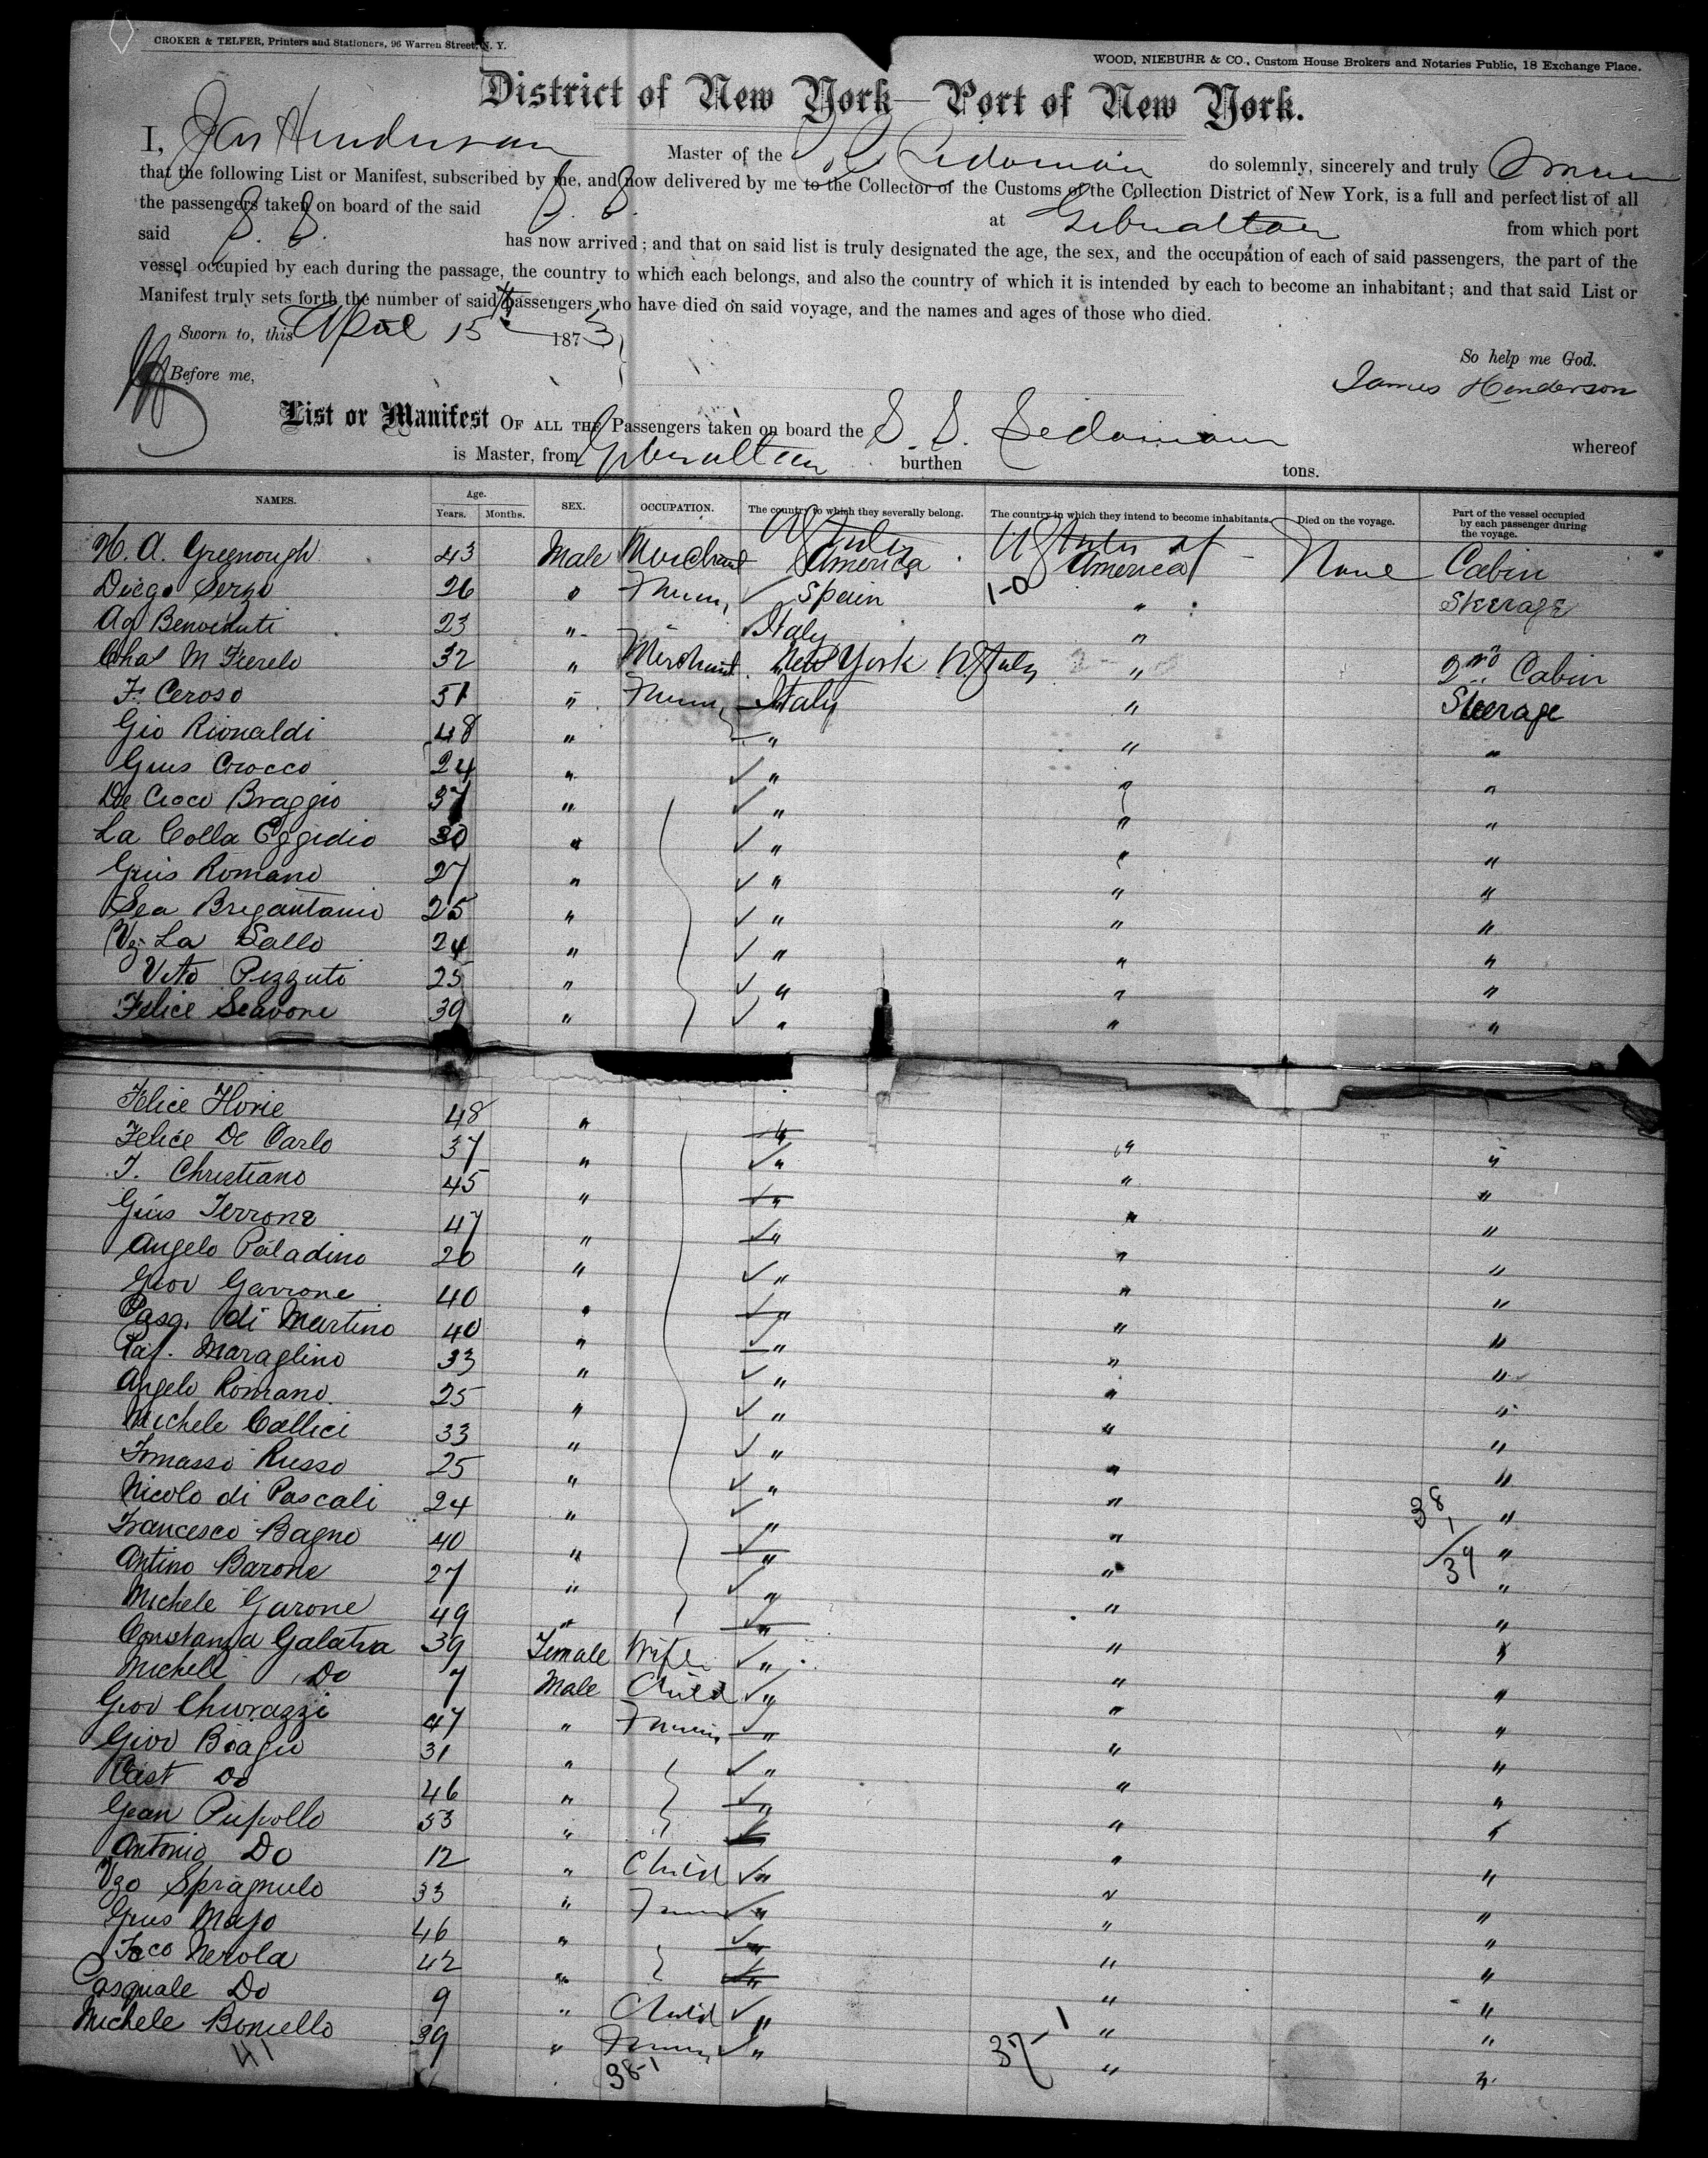 CROKER & TELFER, Printers and Stationers, 96 Warren Street, N. Y.
WOOD, NIEBUHR & CO., Custom House Brokers and Notaries Public, 18 Exchange Place.
District of New York—Port of New York.
I, Jas Henderson Master of the do solemnly, sincerely and truly
that the following List or Manifest, subscribed by me, and now delivered by me to the Collector of the Customs of the Collection District of New York, is a full and perfect list of all
the passengers taken on board of the said S. S. at Gibraltar from which port
said S. S. has now arrived; and that on said list is truly designated the age, the sex, and the occupation of each of said passengers, the part of the
vessel occupied by each during the passage, the country to which each belongs, and also the country of which it is intended by each to become an inhabitant; and that said List or
Manifest truly sets forth the number of said passengers who have died on said voyage, and the names and ages of those who died.
Sworn to, this April 15th 1873
So help me God.
Before me,
James Henderson
List or Manifest OF ALL THE Passengers taken on board the S. S. whereof
is Master, from Gibraltar burthen tons.
NAMES. Age. Years. Months. SEX. OCCUPATION. The country to which they severally belong. The country in which they intend to become inhabitants. Died on the voyage. Part of the vessel occupied by each passenger during the voyage.
H. A. Greenough 43 Male Merchant U States America U States of America None Cabin
Diego 26 " Spain 1-0 " Steerage
Ag Benvenuti 23 " Italy "
Chas M 32 " Merchant New York " 2nd Cabin
F. Ceroso 51 " Italy " Steerage
Gio Rionaldi 48 " " " "
Gius Crocco 24 " " " "
De Cioco Braggio 37 " " " "
La Colla Eggidio 30 " " " "
Gius Romano 27 " " " "
Sea Brigantanio 25 " " " "
Vz La Sallo 24 " " " "
Vito Pizzuti 25 " " " "
Felice Scavone 39 " " " "
Felice Florie 48 " "
Felice De Carlo 37 " " " "
F. Christiano 45 " " " "
Gius Terrone 47 " " " "
Angelo Paladino 20 " " " "
Giov Garrone 40 " " " "
Pasq. di Martino 40 " " " "
Raf. Maraglino 33 " " " "
Angelo Romano 25 " " " "
Michele Callici 33 " " " "
Tomasso Russo 25 " " " "
Nicolo di Pascali 24 " " " "
Francesco Bagno 40 " " " "
Antino Barone 27 " " " "
Michele Garone 49 " " " "
38
1
39
Constanza Galatra 39 Female Wife " " "
Michele Do 7 Male Child " " "
Giov Churazzi 47 " " " "
Giov Biagio 31 " " " "
Do 46 " " " "
Gean Pupollo 33 " " " "
Antonio Do 12 " Child " " "
Vzo Spragnulo 33 " " " "
Gius Majo 46 " " " "
Fsco Nerola 42 " " " "
Pasquale Do 9 " Child " " "
Michele Boniello 39 " " " "
41 38-1 37-1